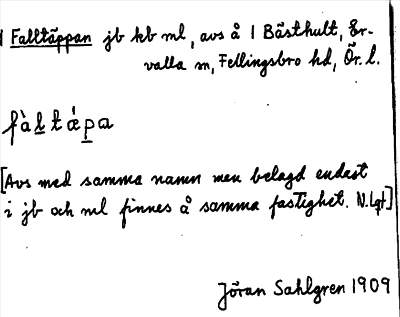 1 Falltäppan jb kb ml, avs å 1 Bästhult, Er-
valla sn, Fellingsbro hd, Ör. l.
fàltǽpa
[Avs med samma namn men belagd endast
i jb och ml finnes å samma fastighet. N. Lgt]
Jöran Sahlgren 1909